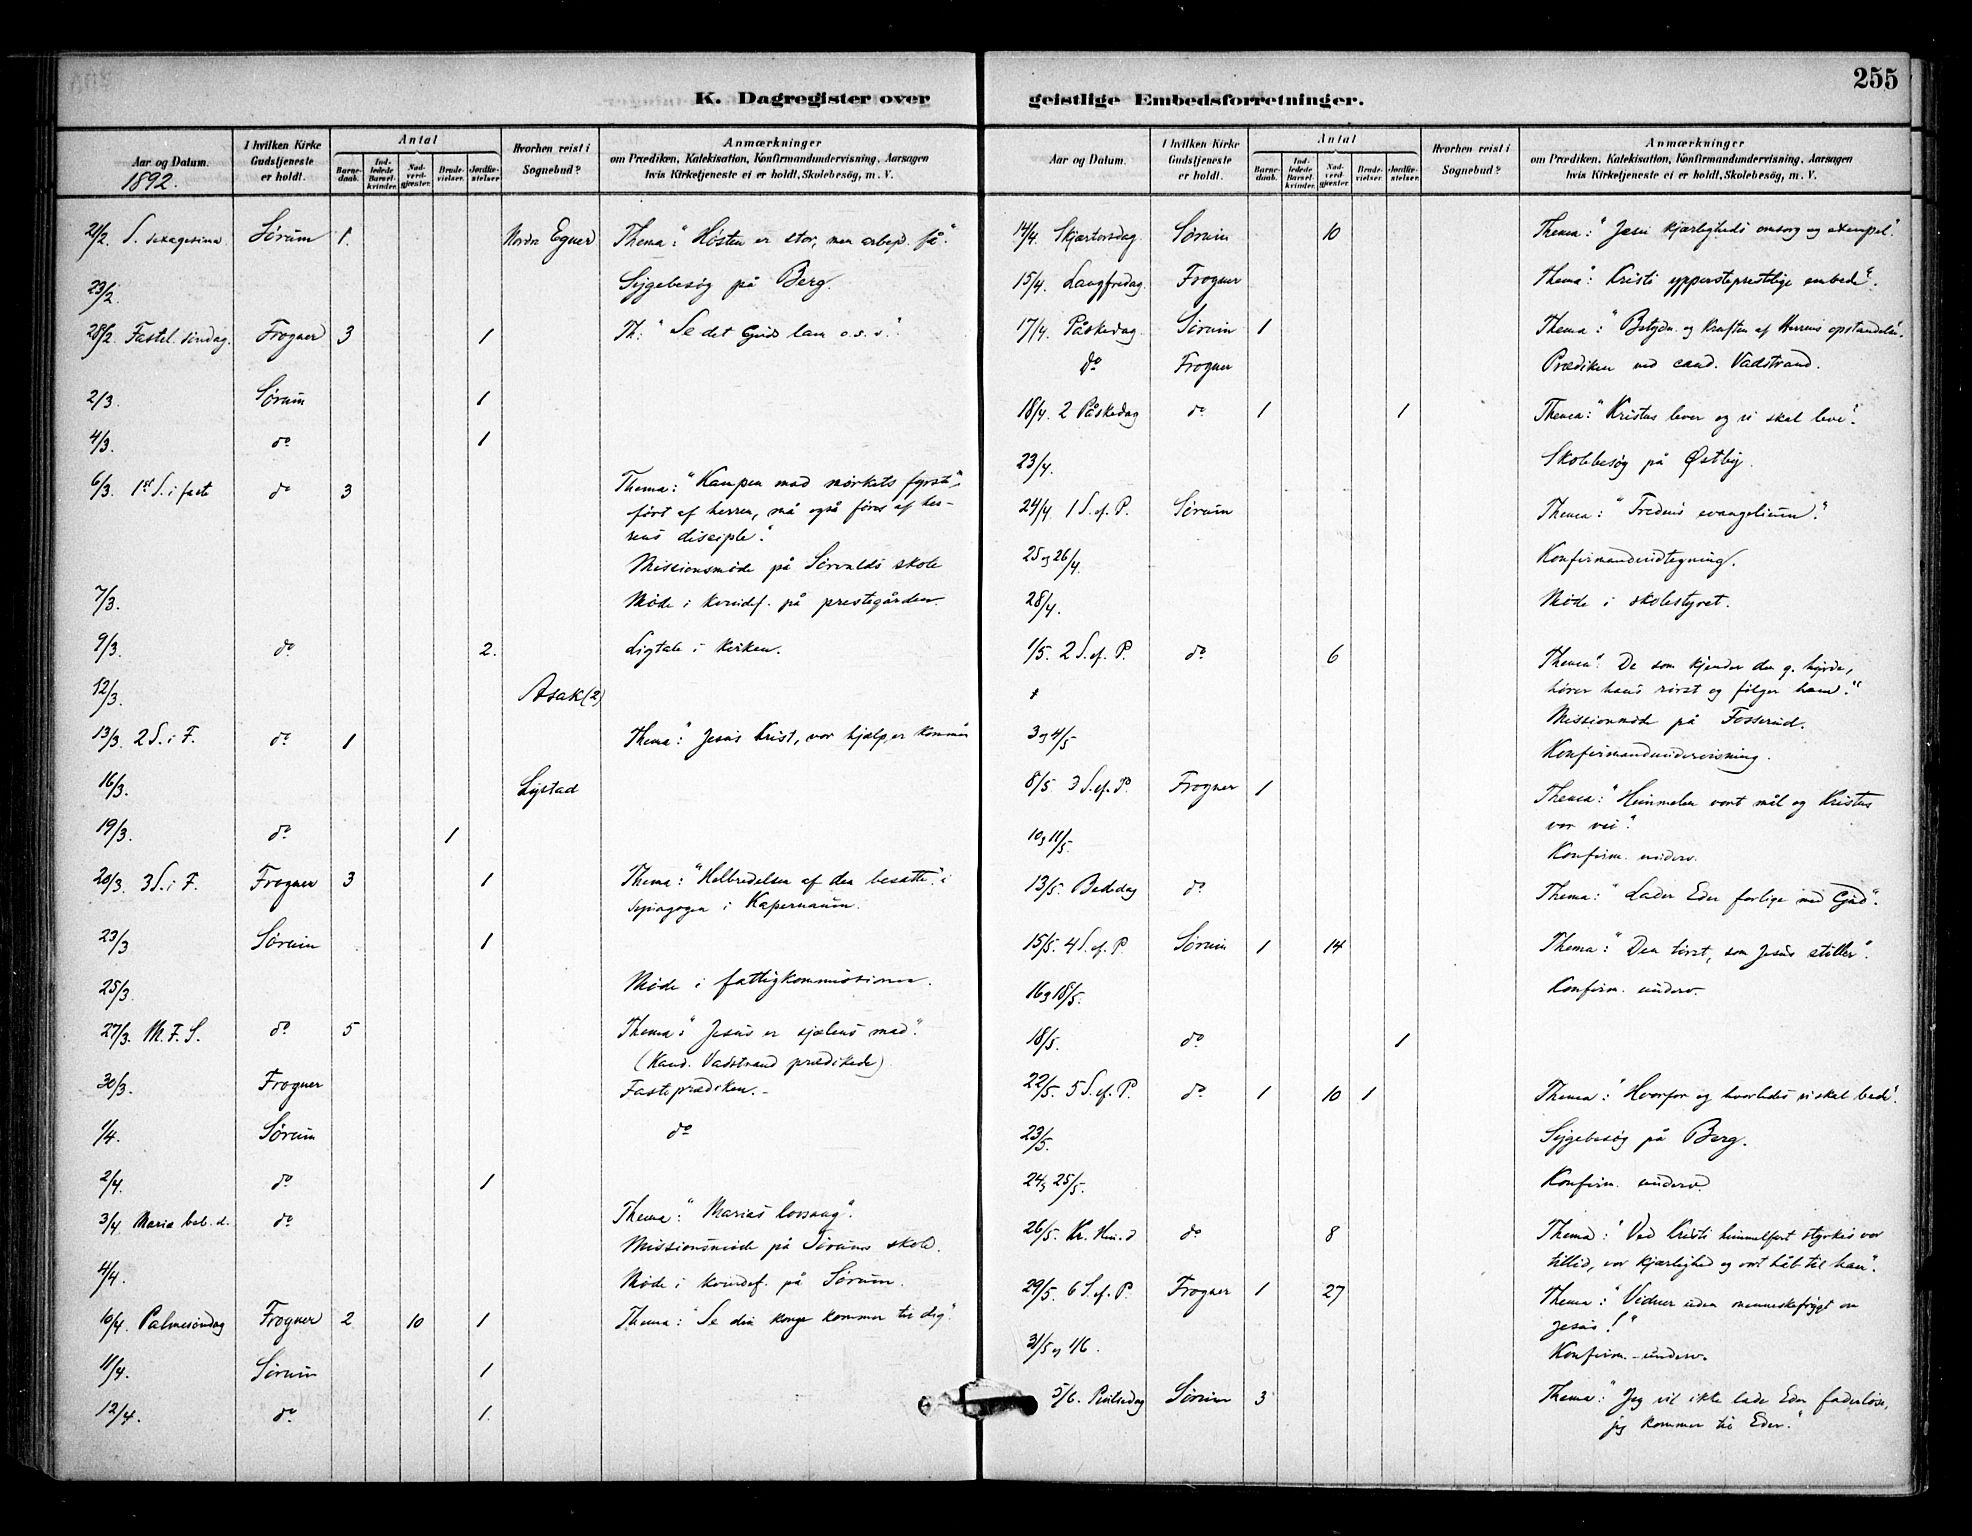 K. Dagregister over
Aar og Datum.
1892.
I hvilken Kirke Gudstjeneste er holdt.
Antal
Barnedaab.
Indledede Barselkvinder.
Nadverdgjester.
Brudevielser.
Jordfæstelser.
Hvorhen reist i Sognebud?
Anmærkninger
om Prædiken, Katekisation, Konfirmandundervisning, Aarsagen
hvis Kirketjeneste ei er holdt, Skolebesøg, m. V.
21/2. S. sexagesima Sørum 1. Nordre Egner Thema: "Høsten er stor, men arbeid. få".
23/2. Sygebesøg på Berg.
28/2. Fastel. søndag. Frogner 3 1 Th: "Se det Guds lam o.s.v."
2/3. Sørum 1
4/3. do 1
6/3. 1st S. i faste do 3 Thema: "Kampen mod mørkets fyrste,
ført af herren, må også føres af her-
rens disciple".
Missionsmøde på Sørvalds skole
7/3. Møde i kvindef. på prestegården.
9/3. do 2. Ligtale i kirken.
12/3. Asak (2)
13/3. 2 S. i F. do 1 Thema: "Jesus Krist, vor hjælper kommen
16/3. Lystad
19/3. do 1
20/3. 3 S. i F. Frogner 3 1 Thema: "Helbredelsen af den besatte" i
synagogen i Kapernaum.
23/3 Sørum 1
25/3. Møde i fattigkommissionen.
27/3. M. F. S. do 5 Thema: "Jesus er sjælens mad".
(Kand. Vadstrand prædikede)
30/3. Frogner Fasteprædiken.-
1/4. Sørum do
2/4. do 1
3/4 Maria beb. d. do Thema: "Marias lovsang".
Missionsmøde på Sørums skole.
4/4. Møde i kvindef. på Sørum.
10/4. Palmesøndag Frogner 2 10 1 Thema: "Se din konge kommer til dig"
11/4. Sørum 1
12/4. do 1.
geistlige Embedsforretninger.
255
Aar og Datum.
I hvilken Kirke Gudstjeneste er holdt.
Antal
Barnedaab.
Indledede Barselkvinder.
Nadverdgjester.
Brudevielser.
Jordfæstelser.
Hvorhen reist i Sognebud?
Anmærkninger
om Prædiken, Katekisation, Konfirmandundervisning, Aarsagen
hvis Kirketjeneste ei er holdt, Skolebesøg, m. V.
14/4. Skjærtorsdag Sørum 10 Thema: "Jesu kjærligheds omsorg og exempel".
15/4. Langfredag. Frogner Thema: "Kristi ypperstepræstlige embede".
17/4. Påskedag. Sørum 1 Thema: "Betydn. og Kraften af Herrens opstandelse".
do Frogner Prædiken ved cand. Vadstrand.
18/4. 2 Påskedag do 1 1 Thema: "Kristus lever og vi skal leve".
23/4. Skolebesøg på Østby.
24/4 1 S. ef. P. Sørum Thema: "Fredens evangelium".
25 og 26/4. Konfirmandindtegning.
28/4. Møde i skolestyret.
1/5. 2 S. ef. P. do 6 Thema: "De som kjender den g. hyrde,
hører hans røst og følger ham."
Missionmøde på Fosserud.
3 og 4/5 Konfirmandundervisning.
8/5. 3 S. ef. P. Frogner 1 Thema: "Himmelen vort mål og Kristus
vor vei".
10 og 11/5. Konfirm. underv.
13/5. Bededag do Thema: "Lader Eder forlige med Gud".
15/5. 4 S. ef. P. Sørum 1 14 Thema: "Den tørst, som Jesus stiller".
16 og 18/5. Konfirm. underv.
18/5. do 1
22/5. 5 S. ef. P. do 1 10 1 Thema: "Hvorfor og hvorledes vi skal bede".
23/5. Sygebesøg på Berg.
24 og 25/5. Konfirm. underv.
26/5. Kr. Him. d do 8 Thema: "Ved Kristi himmelfart styrkes vor
tillid, vor kjærlighed og vort håb til ham".
29/5. 6 S. ef. P Frogner 1 27 Thema: "Vidner uden menneskefrygt om
Jesus!"
31/5 og 1/6. Konfirm.-underv.
5/6. Pintsedag Sørum 3 Thema: "Jeg vil ikke lade Eder faderløse,
jeg kommer til Eder."